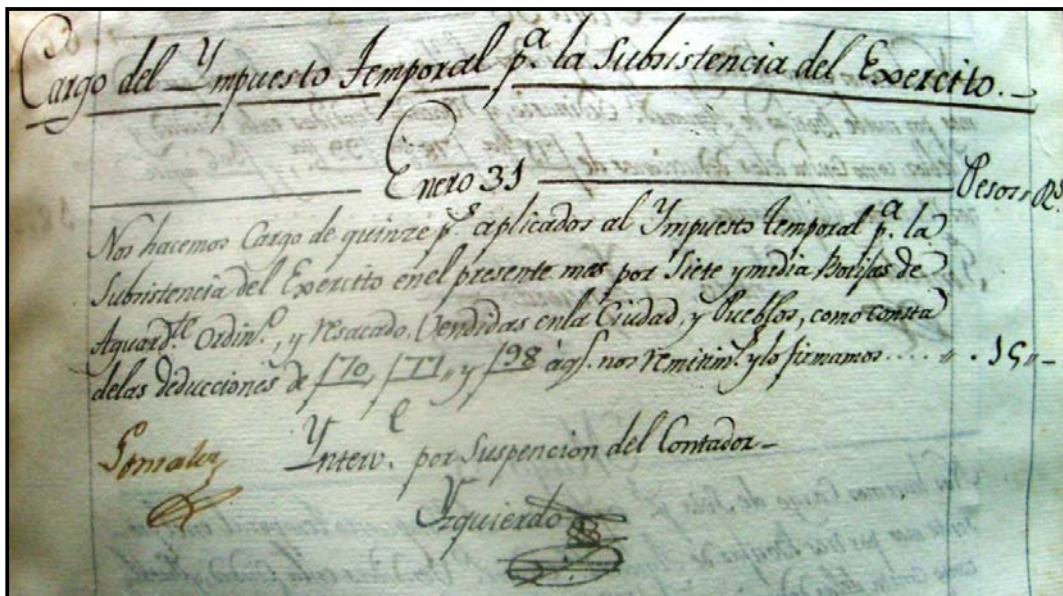 Cargo del Ympuesto Temporal p.a la Subsistencia del Exercito.-
Enero 31 Pesos Rs
Nos hacemos Cargo de quinze ps. aplicados al Ympuesto temporal p.a la
Subsistencia del Exercito en el presente mes por Siete y media Botijas de
Aguard.te Ordin.o, y resacado, Vendidas en la Ciudad, y Pueblos, como consta
de las deducciones de f 70, f 77,, y f 98 á q.s nos remitim.s y lo firmamos.... ,, . 15 ,, -
Gonzalez
Ynterv.e por Suspencion del Contador -
Yzquierdo